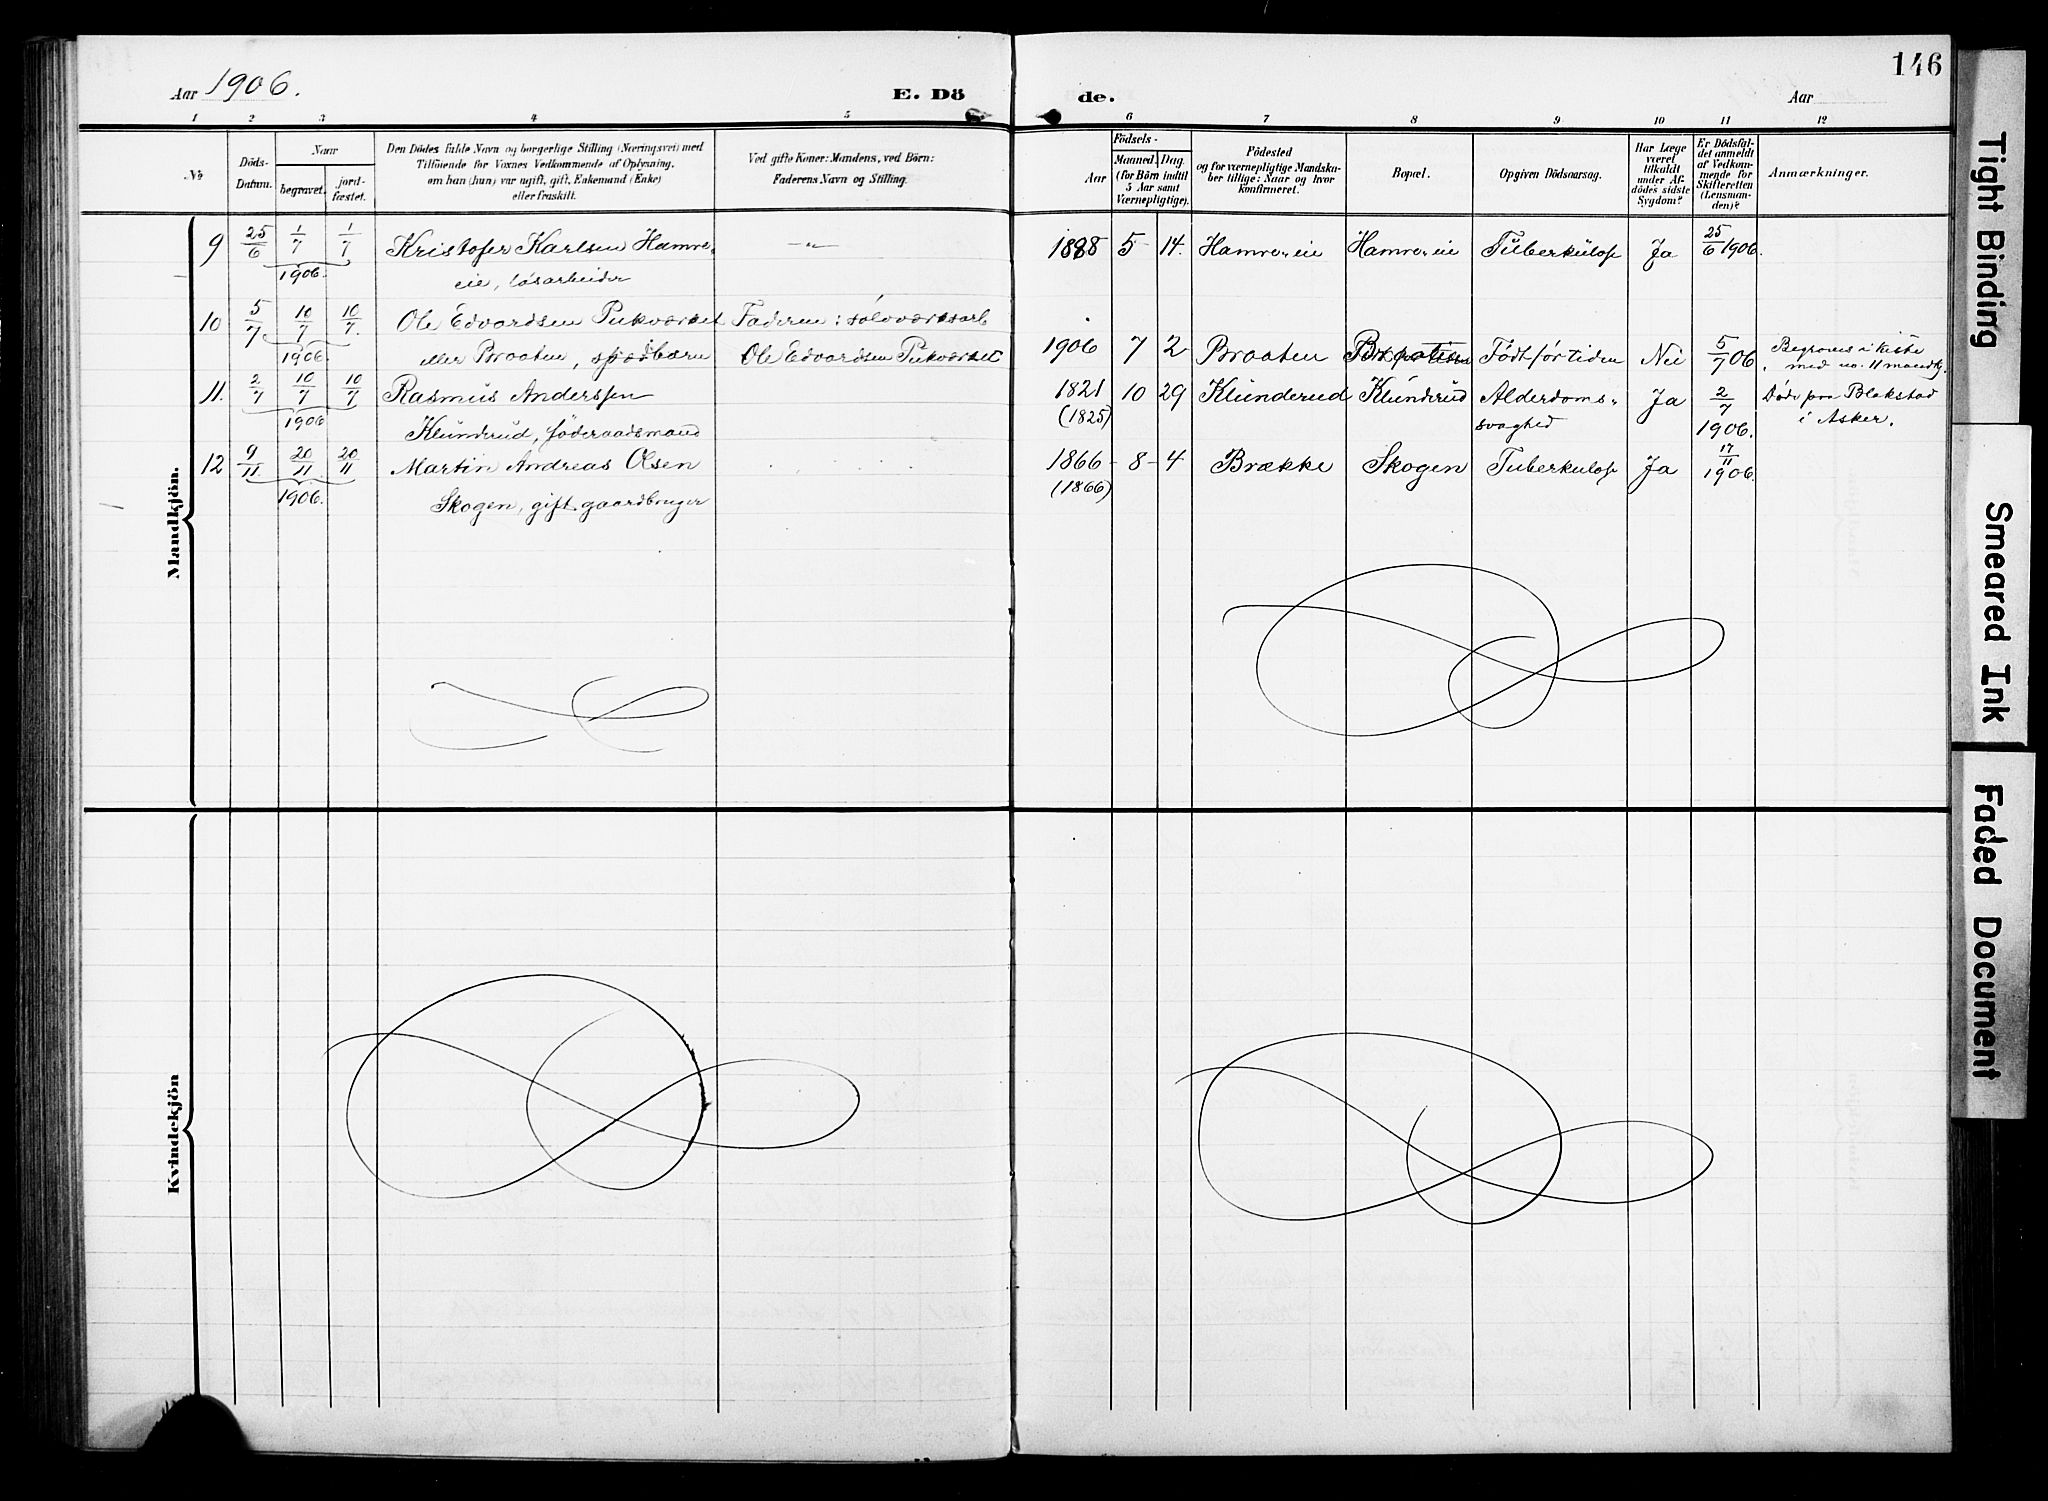 146
Aar 1906.
E. Dö
de.
Aar
1 2 3 4 5 6 7 8 9 10 11 12
No
Döds-
Datum.
Naar
begravet.
jord-
fæstet.
Den Dödes fulde Navn og borgerlige Stilling (Næringsvei) med
Tilföiende for Voxnes Vedkommende af Oplysning,
om han (hun) var ugift, gift, Enkemand (Enke)
eller fraskilt.
Ved gifte Koner: Mandens, ved Börn:
Faderens Navn og Stilling.
Födsels-
Aar
Maaned. Dag.
(for Börn indtil
5 Aar samt
Værnepligtige).
Födested
og for værnepligtige Mandska-
ber tillige: Naar og hvor
konfirmeret.
Bopæl.
Opgiven Dödsaarsag.
Har Læge
været
tilkaldt
under Af-
dödes sidste
Sygdom?
Er Dödsfal-
det anmeldt
af Vedkom-
mende for
Skifteretten
(Lensman-
den)?
Anmærkninger.
Mandkjön.
9 25/6 1/7 1/7 Kristofer Karlsen Hamre- —"— 1888 5 14. Hamre-eie Hamre-eie Tuberkulose Ja 25/6 1906.
1906. eie, løsarbeider
10 5/7 10/7 10/7. Ole Edvardsen Pukværket Faderen: sølvværksarb
1906 eller Braaten, spædbarn Ole Edvardsen Pukværket 1906 7 2 Braaten Født før tiden Nei 5/7 06 Begraves i kiste
med no. 11 mandkj.
11. 2/7 10/7 10/7 Rasmus Anderssen 1821 10 29 Klunderud Klunderud Alderdoms- Ja 2/7 Døde paa Blakstad
1906 Klunderud, føderaadsmand (1825) svaghed 1906. i Asker.
12 9/11. 20/11 20/11 Martin Andreas Olsen 1866 - 8 - 4 Brække Skogen Tuberkulose Ja 17/11 1906.
1906. Skogen, gift gaardbruger (1866)
Kvindekjön
Tight Binding
Smeared Ink
Faded Document